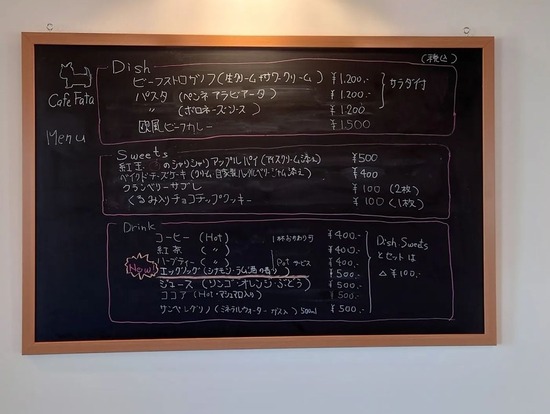 Cafe Fata
Menu
(税込)
Dish
ビーフストロガノフ(生クリーム+サワークリーム) ¥1,200.-
パスタ (ペンネアラビアータ) ¥1,200.- サラダ付
〃 (ボロネーズソース) ¥1,200
欧風ビーフカレー ¥1,500
Sweets
紅玉のシャリシャリアップルパイ(アイスクリーム添え) ¥500
ベイクドチーズケーキ(クリム 自家製 ジャム添え) ¥400
クランベリーサブレ ¥100 (2枚)
くるみ入りチョコチップクッキー ¥100 (1枚)
Drink
コーヒー (Hot) 1杯おかわり可 ¥400.-
紅茶 (〃) ¥400.-
ハーブティー (〃) Pot サービス ¥400.-
New! エッグノッグ(シナモン・ラム酒の香り) ¥500.-
ジュース (リンゴ・オレンジ・ぶどう) ¥500.-
ココア (Hot・マシュマロ入り) ¥500.-
サンペレグリノ(ミネラルウォーター ガス入) 500ml ¥500.-
Dish, Sweets
とセットは
△¥100.-